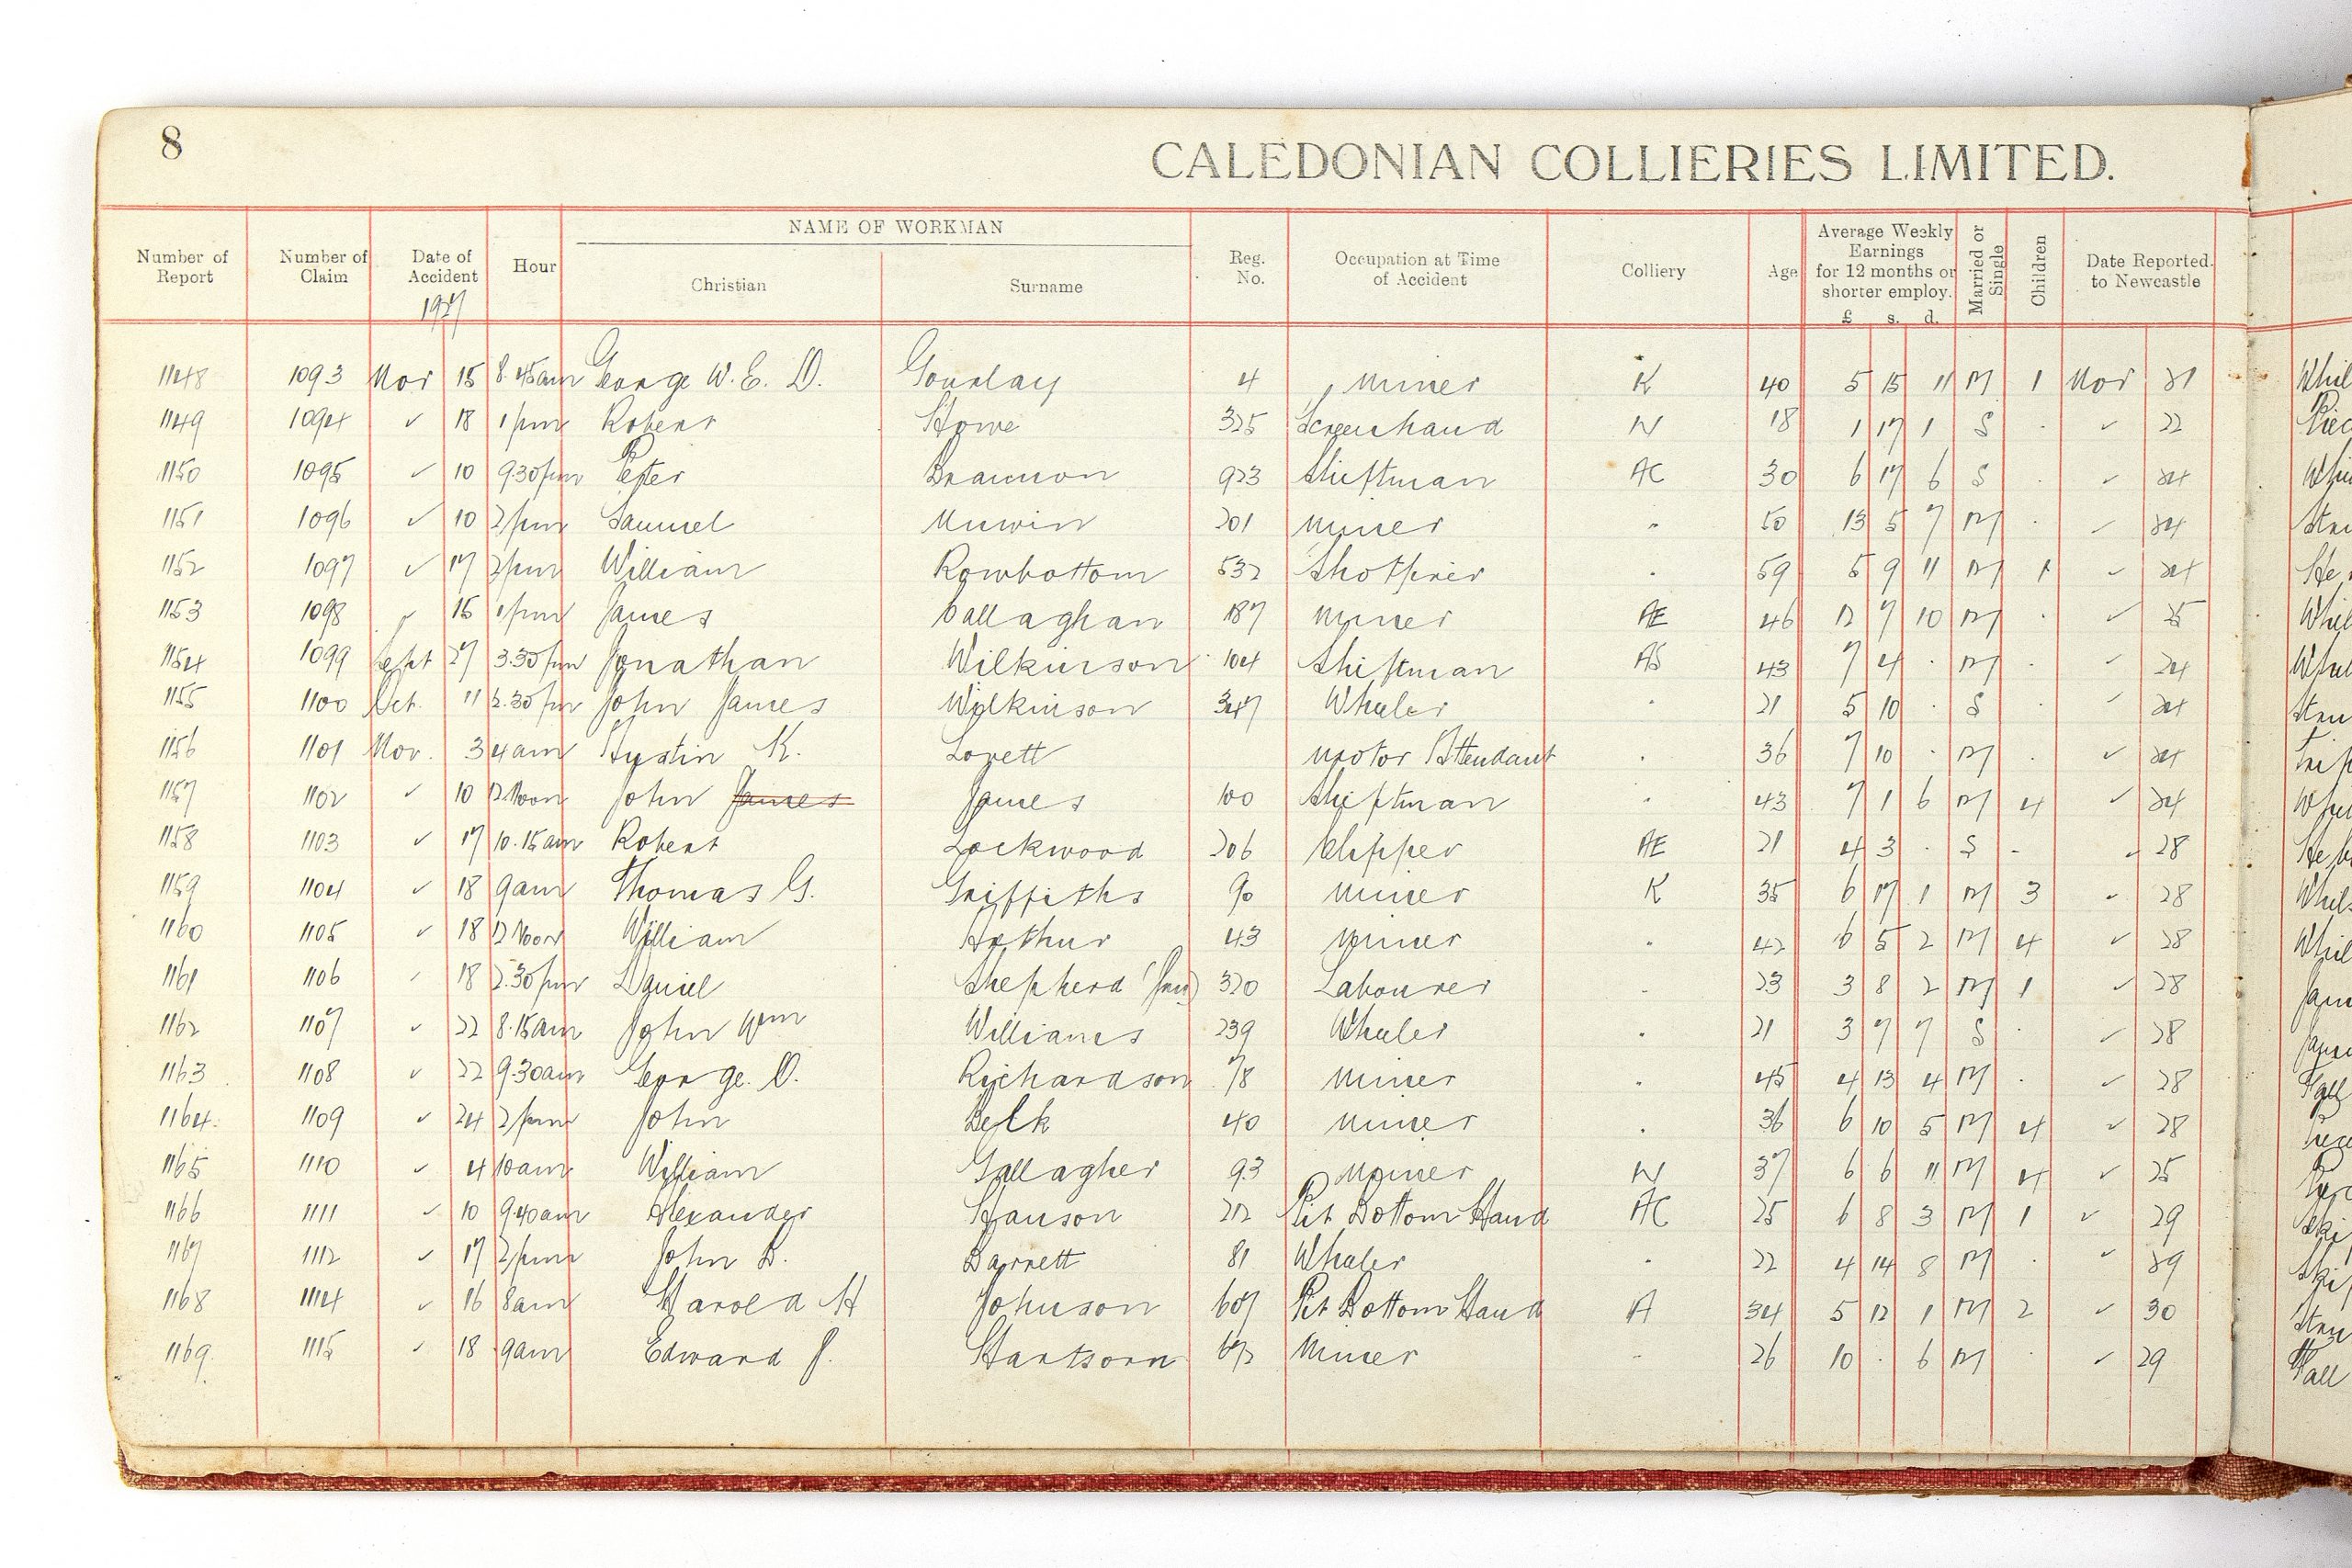 8
CALEDONIAN COLLIERIES LIMITED.
Number of Report Number of Claim Date of Accident 1927 Hour NAME OF WORKMAN Christian Surname Reg. No. Occupation at Time of Accident Colliery Age Average Weekly Earnings for 12 months or shorter employ. £ s. d. Married or Single Children Date Reported to Newcastle
1148 1093 Nov 15 8.45am George W. E. D. Gourlay 4 Miner K 40 5 15 11 M 1 Nov 21
1149 1094 ✓ 18 1pm Robert Howe 325 Screenhand N 18 1 17 1 S . ✓ 22
1150 1095 ✓ 10 9.30pm Peter Brannon 923 Shiftman AC 30 6 17 6 S . ✓ 24
1151 1096 ✓ 10 2pm Samuel Unwin 201 Miner " 50 13 5 7 M . ✓ 24
1152 1097 ✓ 17 2pm William Rowbottom 532 Shotfirer " 59 5 9 11 M 1 ✓ 24
1153 1098 ✓ 15 1pm James Callaghan 187 Miner AE 46 12 7 10 M . ✓ 25
1154 1099 Sept 27 3.30pm Jonathan Wilkinson 104 Shiftman AS 43 7 4 . M . ✓ 24
1155 1100 Oct. 11 2.30pm John James Wilkinson 347 Wheeler " 21 5 10 . S . ✓ 24
1156 1101 Nov. 3 4am Austin K. Lovett Motor Attendant " 36 7 10 . M . ✓ 24
1157 1102 ✓ 10 12 Noon John James James 100 Shiftman " 43 7 1 6 M 4 ✓ 24
1158 1103 ✓ 17 10.15am Robert Lockwood 206 Clipper AE 21 4 3 . S - ✓ 28
1159 1104 ✓ 18 9am Thomas G. Griffiths 90 Miner K 35 6 17 1 M 3 ✓ 28
1160 1105 ✓ 18 12 Noon William Arthur 43 Miner " 42 6 5 2 M 4 ✓ 28
1161 1106 ✓ 18 2.30pm Daniel Shepherd (Jun) 320 Labourer " 23 3 8 2 M 1 ✓ 28
1162 1107 ✓ 22 8.15am John Wm Williams 239 Wheeler " 21 3 7 7 S . ✓ 28
1163 1108 ✓ 22 9.30am George. D. Richardson 78 Miner " 45 4 13 4 M . ✓ 28
1164 1109 ✓ 24 2pm John Belk 40 Miner " 36 6 10 5 M 4 ✓ 28
1165 1110 ✓ 4 10am William Gallagher 93 Miner N 37 6 6 11 M 4 ✓ 25
1166 1111 ✓ 10 9.40am Alexander Hanson 212 Pit Bottom Hand AC 25 6 8 3 M 1 ✓ 29
1167 1112 ✓ 17 2pm John B. Barnett 81 Wheeler " 22 4 14 8 M . ✓ 29
1168 1114 ✓ 16 8am Harold H Johnson 607 Pit Bottom Hand A 34 5 12 1 M 2 ✓ 30
1169 1115 ✓ 18 9am Edward J. Hartsorn Miner " 26 10 . 6 M . ✓ 29